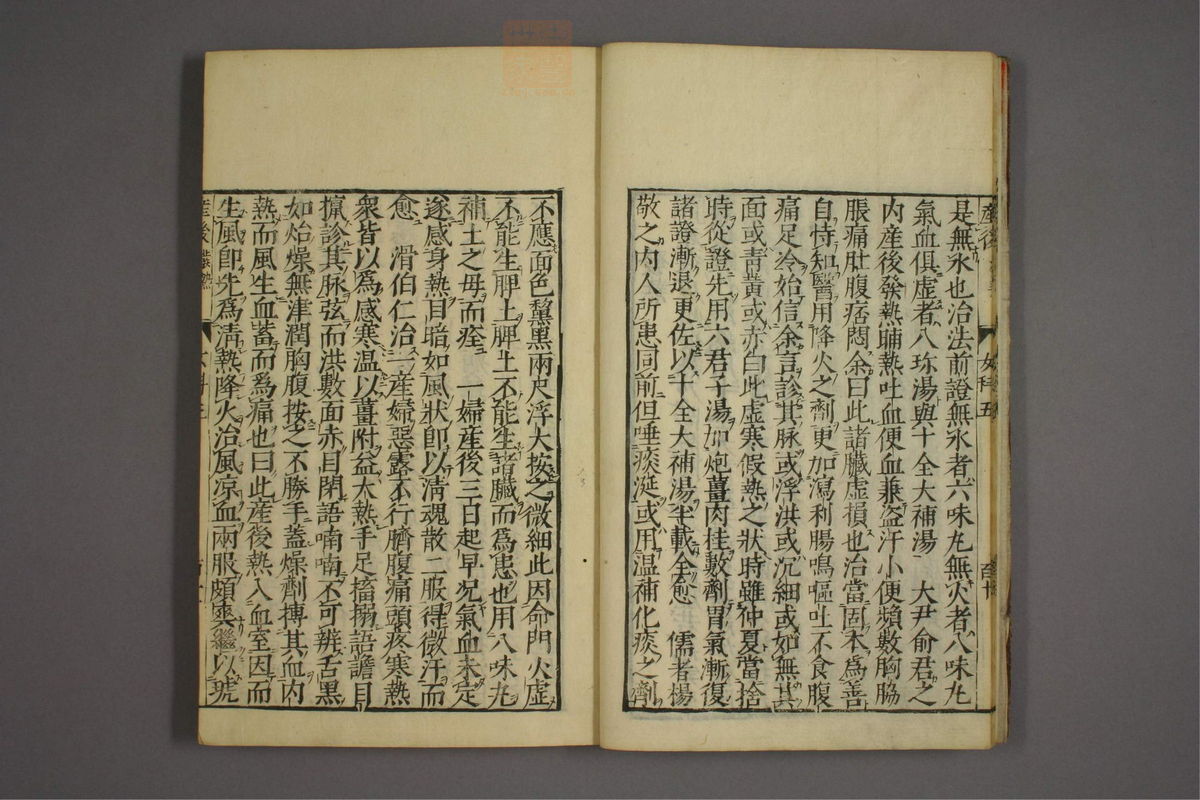 是無水也治法前證無水者六味丸無火者八味丸
氣血俱虛者八珎湯與十全大補湯　大尹俞君之
内産後發熱晡熱吐血便血兼盗汗小便頻數胸脇
脹痛肚腹痞悶余曰此諸臟虛損也治當固本爲善
自恃知醫用降火之劑更加瀉利腸鳴嘔吐不食腹
痛足冷始信余言診其脉或浮洪或沉細或如無其
面或青黄或赤白此虛寒假熱之狀時雖仲夏當捨
時從證先用六君子湯加炮薑肉桂數劑胃氣漸復
諸證漸退更佐以十全大補湯半載全愈　儒者楊
敬之内人所患同前但唾痰涎或用温補化痰之劑
不應面色黧黑兩尺浮大按之微細此因命門火虛
不能生脾土脾土不能生諸臟而爲患也用八味丸
補土之母而痊　一婦産後三日起早况氣血未定
遂感身熱目暗如風狀即以清魂散二服得微汗而
愈　滑伯仁治一産婦惡露不行臍腹痛頭疼寒熱
衆皆以爲感寒温以薑附益大熱手足搐搦語譫目
攛診其脉弦而洪數面赤目閉語喃喃不可辨舌黑
如炲燥無津潤胸腹按之不勝手蓋燥劑摶其血内
熱而風生血蓄而爲痛也曰此産後熱入血室因而
生風即先爲清熱降火治風凉血兩服頗爽繼以琥
産後
女科五